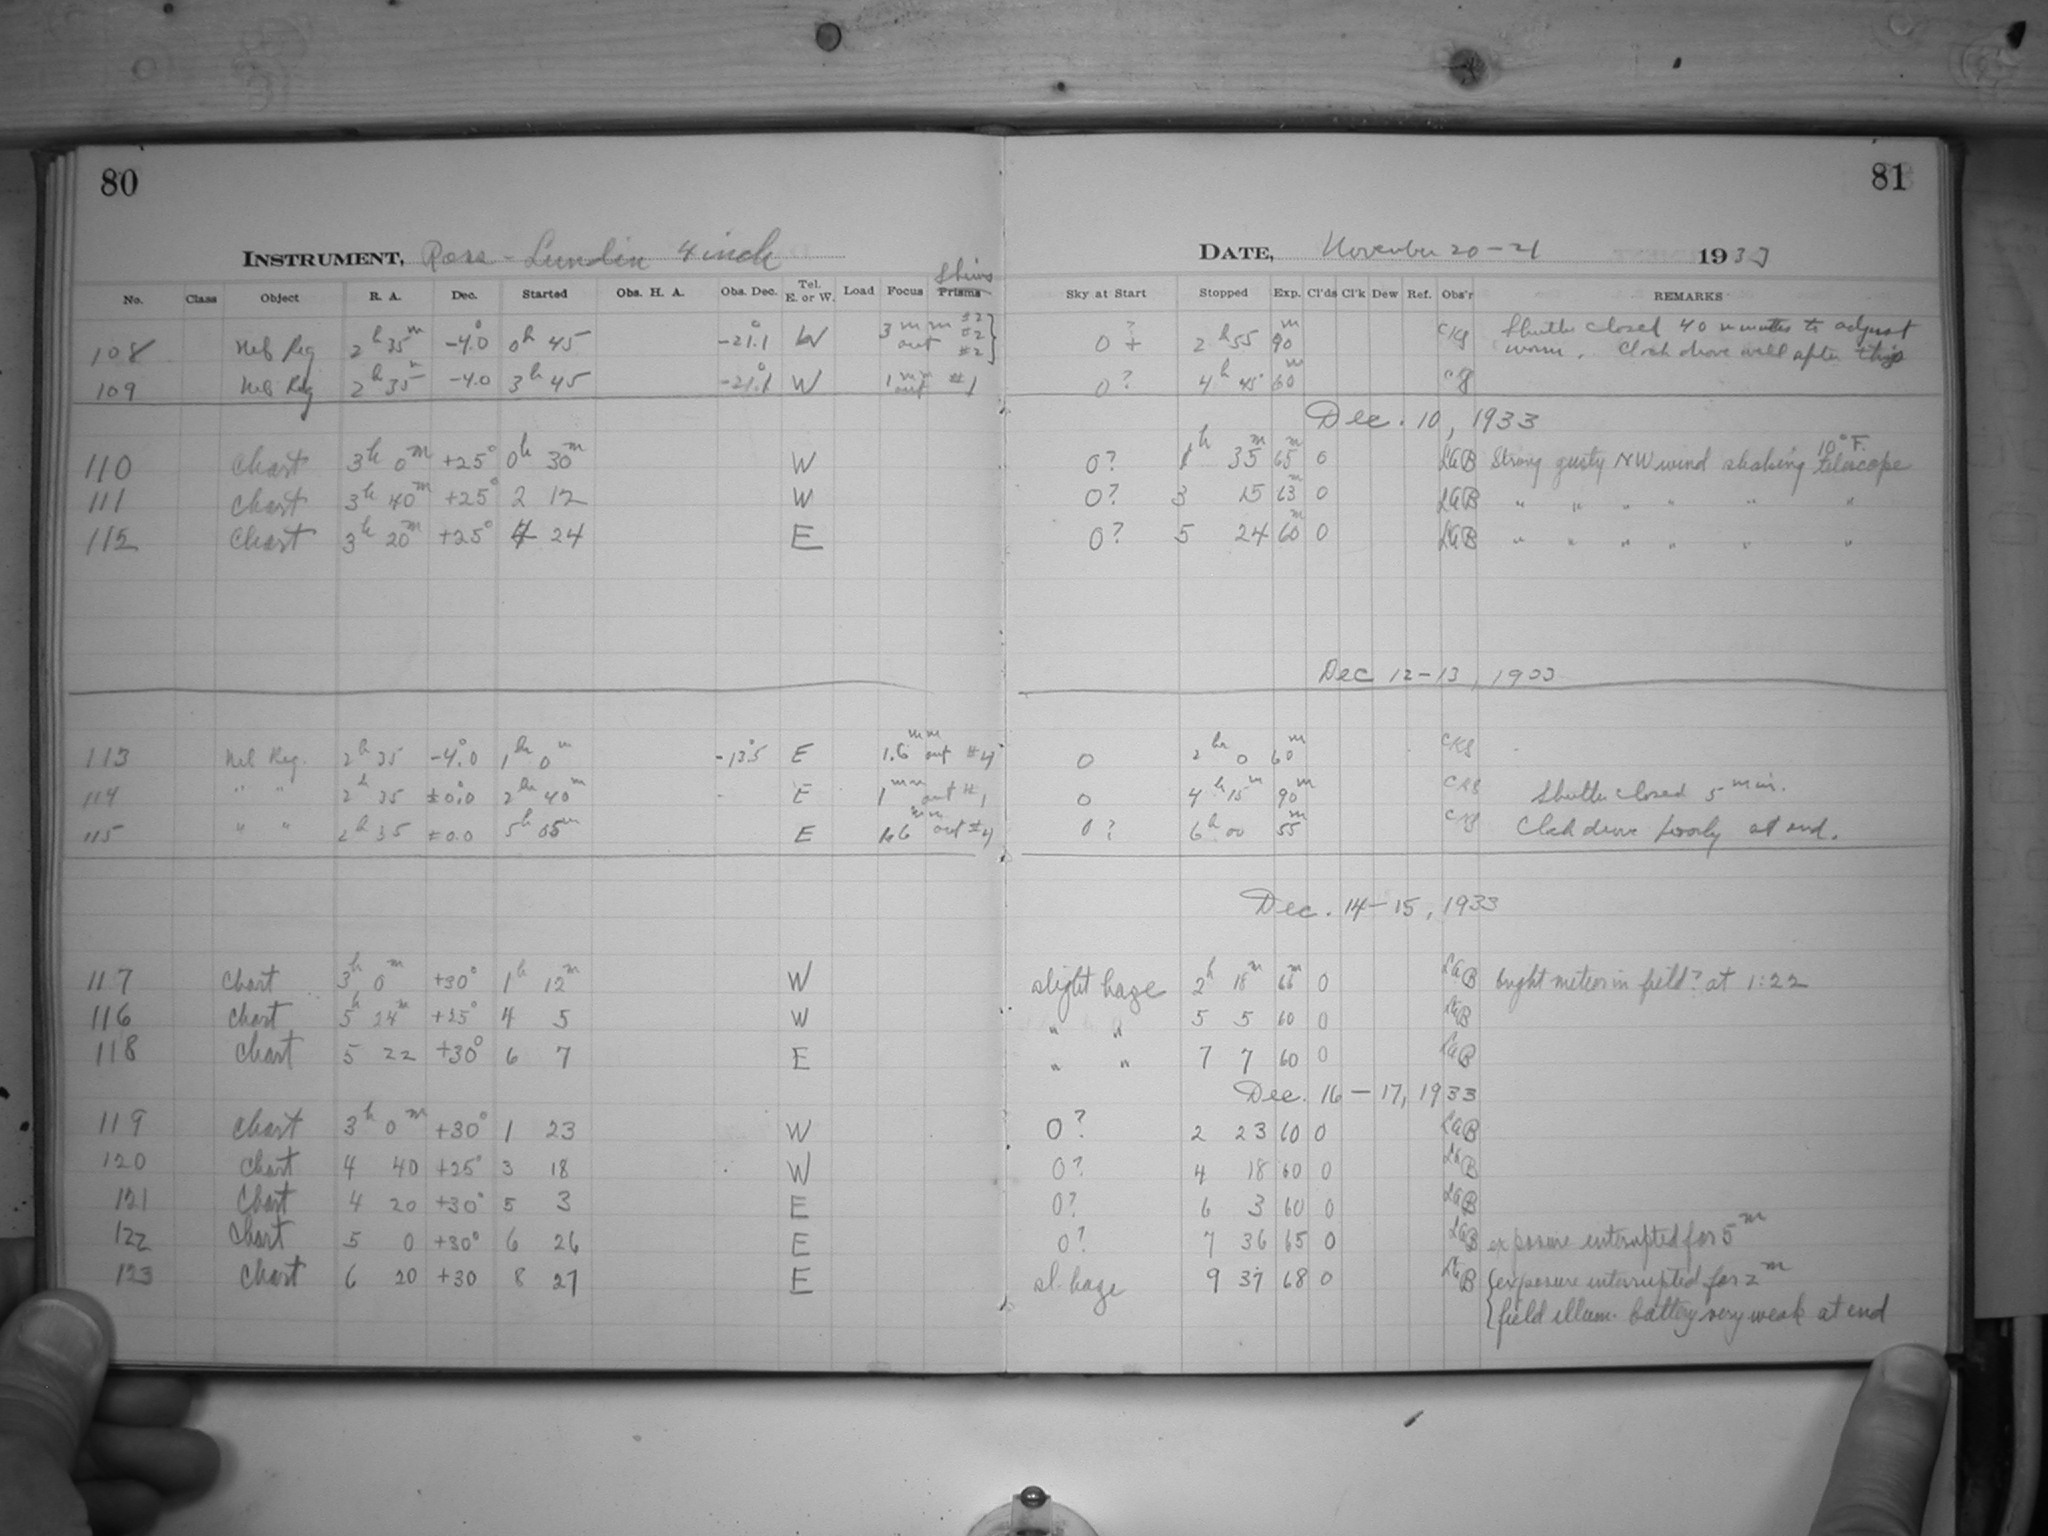 80
81
INSTRUMENT, Ross-Lundin 4 inch
DATE, November 20-21 1933
Shims
No. Class Object R. A. Dec. Started Obs. H. A. Obs. Dec. Tel. E. or W. Load Focus Prisms Sky at Start Stopped Exp. Cl'ds Cl'k Dew Ref. Obs'r REMARKS
108 Neb Reg 2h 35m -4.0° 0h 45 -21.1° W 3mm out #2 #2 #2 0 ? + 2h 55 90m Shutter closed 40 minutes to adjust
worm. Clock drove well after this
109 Neb Reg 2h 35m -4.0 3h 45 -21.1° W 1mm out #1 0? 4h 45 60m
Dec. 10, 1933
110 Chart 3h 0m +25° 0h 30m W 0? 1h 35m 65m 0 LGB Strong gusty NW wind shaking telescope 10°F.
111 Chart 3h 40m +25° 2 12 W 0? 3 15 63m 0 LGB " " " " " "
112 Chart 3h 20m +25° 4 24 E 0? 5 24 60m 0 LGB " " " " " "
Dec 12-13, 1933
113 Neb Reg. 2h 35 -4.0° 1hr 0m -13.5° E 1.6mm out #4 0 2hr 0 60m
114 " " 2h 35 ±0.0 2hr 40m E 1mm out #1 0 4h 15m 90m Shutter closed 5 min.
115 " " 2h 35 ±0.0 5h 05m E 1.6mm out #4 0? 6h 00 55m Clock drove poorly at end.
Dec. 14-15, 1933
117 Chart 3h 0m +30° 1h 12m W slight haze 2h 18m 66m 0 LGB bright meteor in field? at 1:22
116 Chart 5h 24m +25° 4 5 W " " 5 5 60 0 LGB
118 Chart 5 22 +30° 6 7 E " " 7 7 60 0 LGB
Dec. 16-17, 1933
119 Chart 3h 0m +30° 1 23 W 0? 2 23 60 0 LGB
120 Chart 4 40 +25° 3 18 W 0? 4 18 60 0 LGB
121 Chart 4 20 +30° 5 3 E 0? 6 3 60 0 LGB
122 Chart 5 0 +30° 6 26 E 0? 7 36 65 0 LGB exposure interrupted for 5m
123 Chart 6 20 +30 8 27 E sl. haze 9 37 68 0 LGB exposure interrupted for 2m
field illum. battery very weak at end